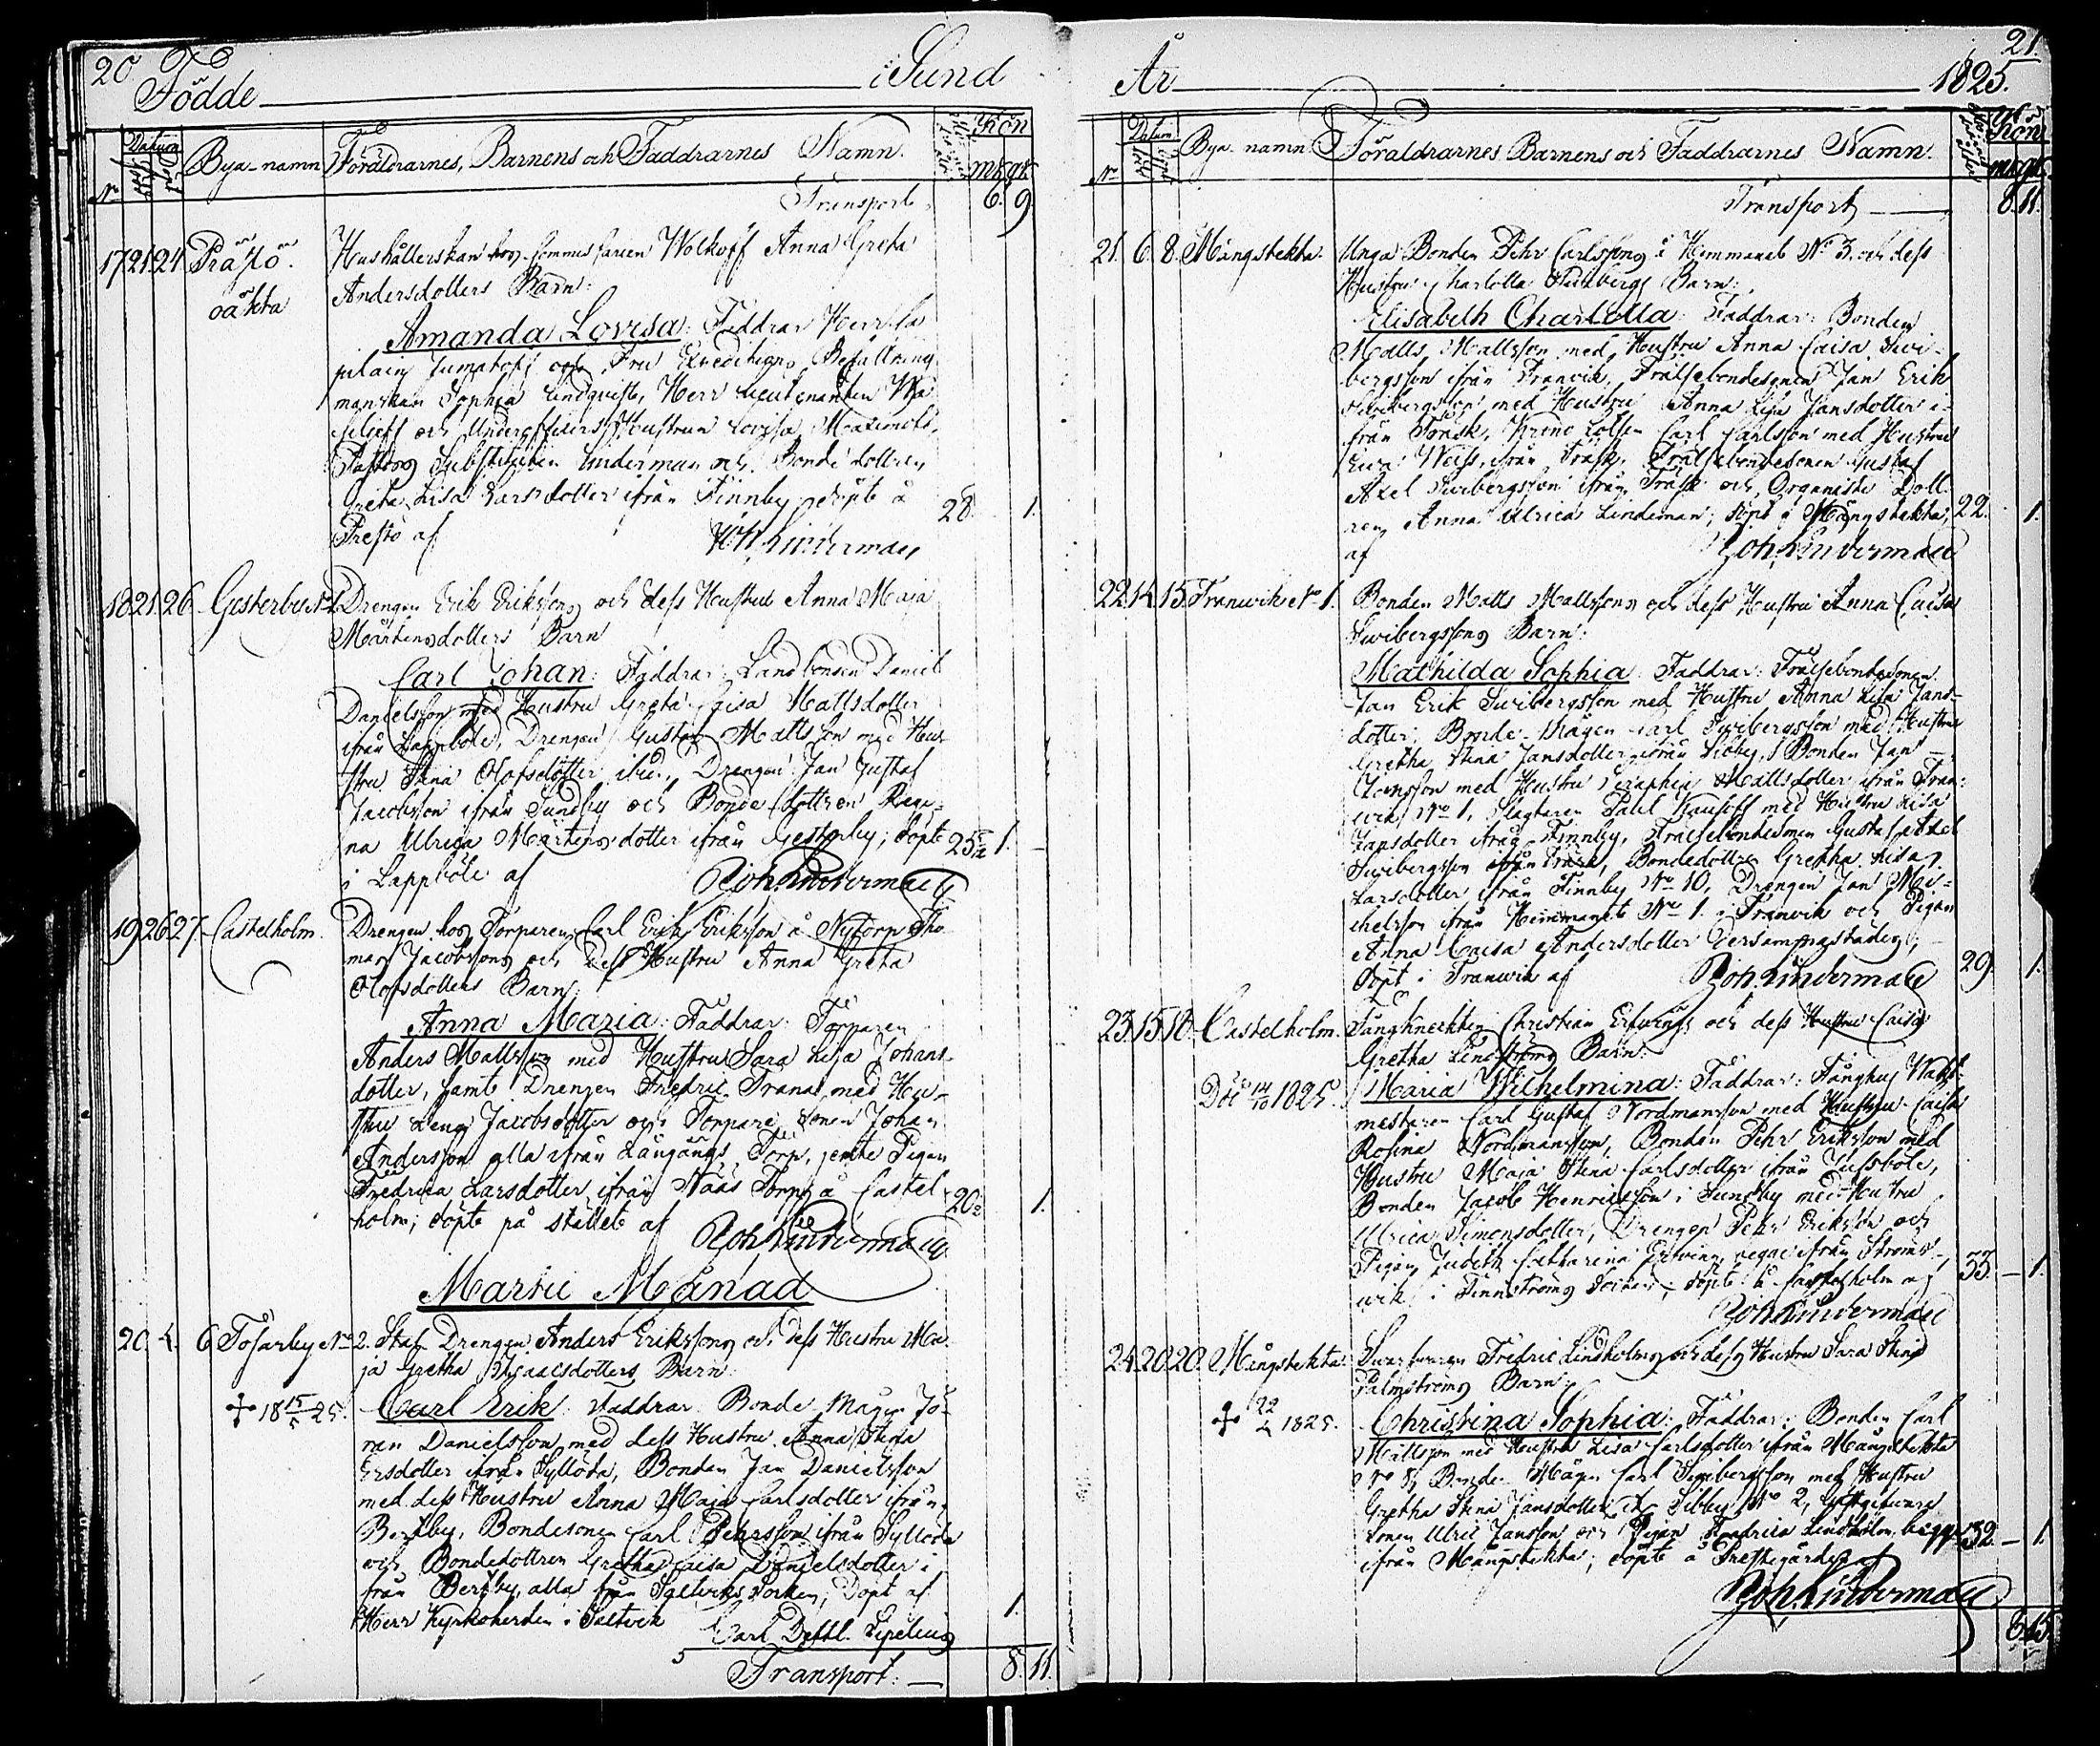 20 Födde i Sund
Datum Kön
No Född Döpt Bya-namn Föräldrarnes, Barnens och Faddrarnes Namn. mk. qk.
Transport 6. 9.
17 21 24 Prästö. Hushållerskan hos Commissarien Wolkoff Anna Greta
oäkta Andersdotters Barn:
Amanda Lovisa: Faddrar Herr Ca
pitain Jumatoff och Fru Expeditions Befallning
manskan Sophia Lindqvist, Herr Lieutenanten
och Underofficers Hustrun Lovisa
Pastors Substituten Linderman och Bonde dottren
Greta Lisa Larsdotter ifrån Finnby, döpt å 28. 1.
Prestö af Linderman
18 21. 26. Gesterby No 2. Drengen Erik Eriksons och dess Hustrus Anna Maja
Mårtensdotters Barn
Carl Johan: Faddrar: Landbonden Daniel
Danielsson med Hustru Greta Caisa Mattsdotter
ifrån Lappböle, Drengen Gustaf Mattsson med Hu-
stru Stina Olofsdotter ibid., Drengen Jan Gustaf
Jacobsson ifrån Sundby och Bonde dottren Regi-
na Ulrica Mårtensdotter ifrån Gesterby; döpt 25 1.
i Lappböle af Joh. Linderman
19 26 27. Castelholm. Drengen hos Torparen Carl Erik Eriksson å Nytorp Tho
mas Jacobssons och Dess Hustru Anna Greta
Olofsdotters Barn
Anna Maria: Faddrar: Torparen
Anders Mattsson med Hustru Sara Lisa Johans-
dotter, samt Drengen Fredric Trana med Hu-
stru Lena Jacobsdotter och Torpare sonen Johan
Andersson alla ifrån Långängs Torp, jemte Pigan
Fredrica Larsdotter ifrån Nääs Torp å Castel- 20 1.
holm; döpt på stället af Joh. Linderman
Martii Månad
20. 4. 6 Tosarby No 2. Staf Drengen Anders Erikssons och dess Hustru Ma-
ja Gretha Isaacsdotters Barn:
+ 18 15/5 25. Carl Erik: Faddrar Bonde Mågen Jö-
ran Danielsson med dess Hustru Anna Stina
Ersdotter ifrån Syllöda, Bonden Jan Danielsson
med dess Hustru Anna Maja Carlsdotter ifrån
Bertby, Bondesonen Carl Pehrsson ifrån Syllöda
och Bondedottren Gretha Caisa Danielsdotter i
från Bertby, alla från Saltviks Socken; Döpt af 1.
Herr Kyrkoherden i Saltvik Carl Dettl. Sipelius
Transport: 8. 11.
År 1825. 21.
Datum Kön
No Född Döpt Bya-namn Föräldrarnes Barnens och Faddrarnes Namn. mk. qk.
Transport 8. 11.
21. 6. 8. Mångstekta. Unga Bonden Pehr Carlssons å Hemmanet No 3. och dess
Hustru Charlotta Barn:
Elisabeth Charlotta: Faddrar: Bonden
Matts Mattsson med Hustru Anna Caisa Swi-
bergsson ifrån Tranvik, Frälsebondesonen Jan Erik
Swibergsson med Hustru Anna Lisa Jansdotter i-
från Träsk, Carl Carlsson med Hustru
Ewa Weiss, ifrån Träsk, Frälsebondesonen Gustaf
Axel Swibergsson ifrån Träsk och Organiste Dott-
ren Anna Ulrica Lindeman; döpt i Mångstekta 22. 1.
af Joh. Linderman
22. 14. 15. Tranwik No 1. Bonden Matts Mattssons och dess Hustru Anna Caisa
Swibergssons Barn:
Mathilda Sophia: Faddrar: Frälsebondesonen
Jan Erik Swibergsson med Hustru Anna Lisa Jans-
dotter, Bonde-Mågen Carl Swibergsson med Hustru
Gretha Stina Jansdotter ifrån Sibby, Bonden Jan
Jansson med Hustru Seraphia Mattsdotter ifrån Tran-
wik No 1, Slagtaren Paul med Hustru Lisa
Jansdotter ifrån Finnby, Frälsebondesonen Gustaf Axel
Swibergsson ifrån Träsk, Bondedottren Gretha Lisa
Larsdotter ifrån Finnby No 10, Drengen Jan Mi-
chelsson ifrån Hemmanet No 1. i Tranvik och Pigan
Anna Caisa Andersdotter dersammastädes;
döpt i Tranwik af Joh. Linderman 29. 1.
23. 15. 18. Castelholm. Fångknekten Christian Erfwings och dess Hustru Caisa
Gretha Lindströms Barn:
Död 14/10 1825. Maria Wilhelmina: Faddrar: Fånghus Wakt-
mestaren Carl Gustaf Nordmansson med Hustru Caisa
Rosina Nordmansson, Bonden Pehr Eriksson med
Hustru Maja Stina Carlsdotter ifrån Jussböle,
Bonden Jacob Henricsson i Sundby med Hustru
Ulrica Simonsdotter, Drengen Pehr Eriksson och
Pigan Judith Catharina ifrån Ströms-
wik i Finnströms Socken; döpt å Castelholm af 33. 1.
Joh. Linderman
24. 20. 20. Mångstekta. Swarfwaren Fredric Lindholms och dess Hustru Sara Stina
Palmströms Barn
+ 22/4 1825. Christina Sophia: Faddrar: Bonden Carl
Mattsson med Hustru Lisa Carlsdotter ifrån Mångstekta
No 8, Bonde Mågen Carl Swibergsson med Hustru
Gretha Stina Jansdotter ifr Sibby No 2, Gästgifvare
Sonen Ulric Jansson och Pigan Fredrica Lindholm begge 32. 1.
ifrån Mångstekta; döpt å Prestegården af
Joh. Linderman
8. 15.